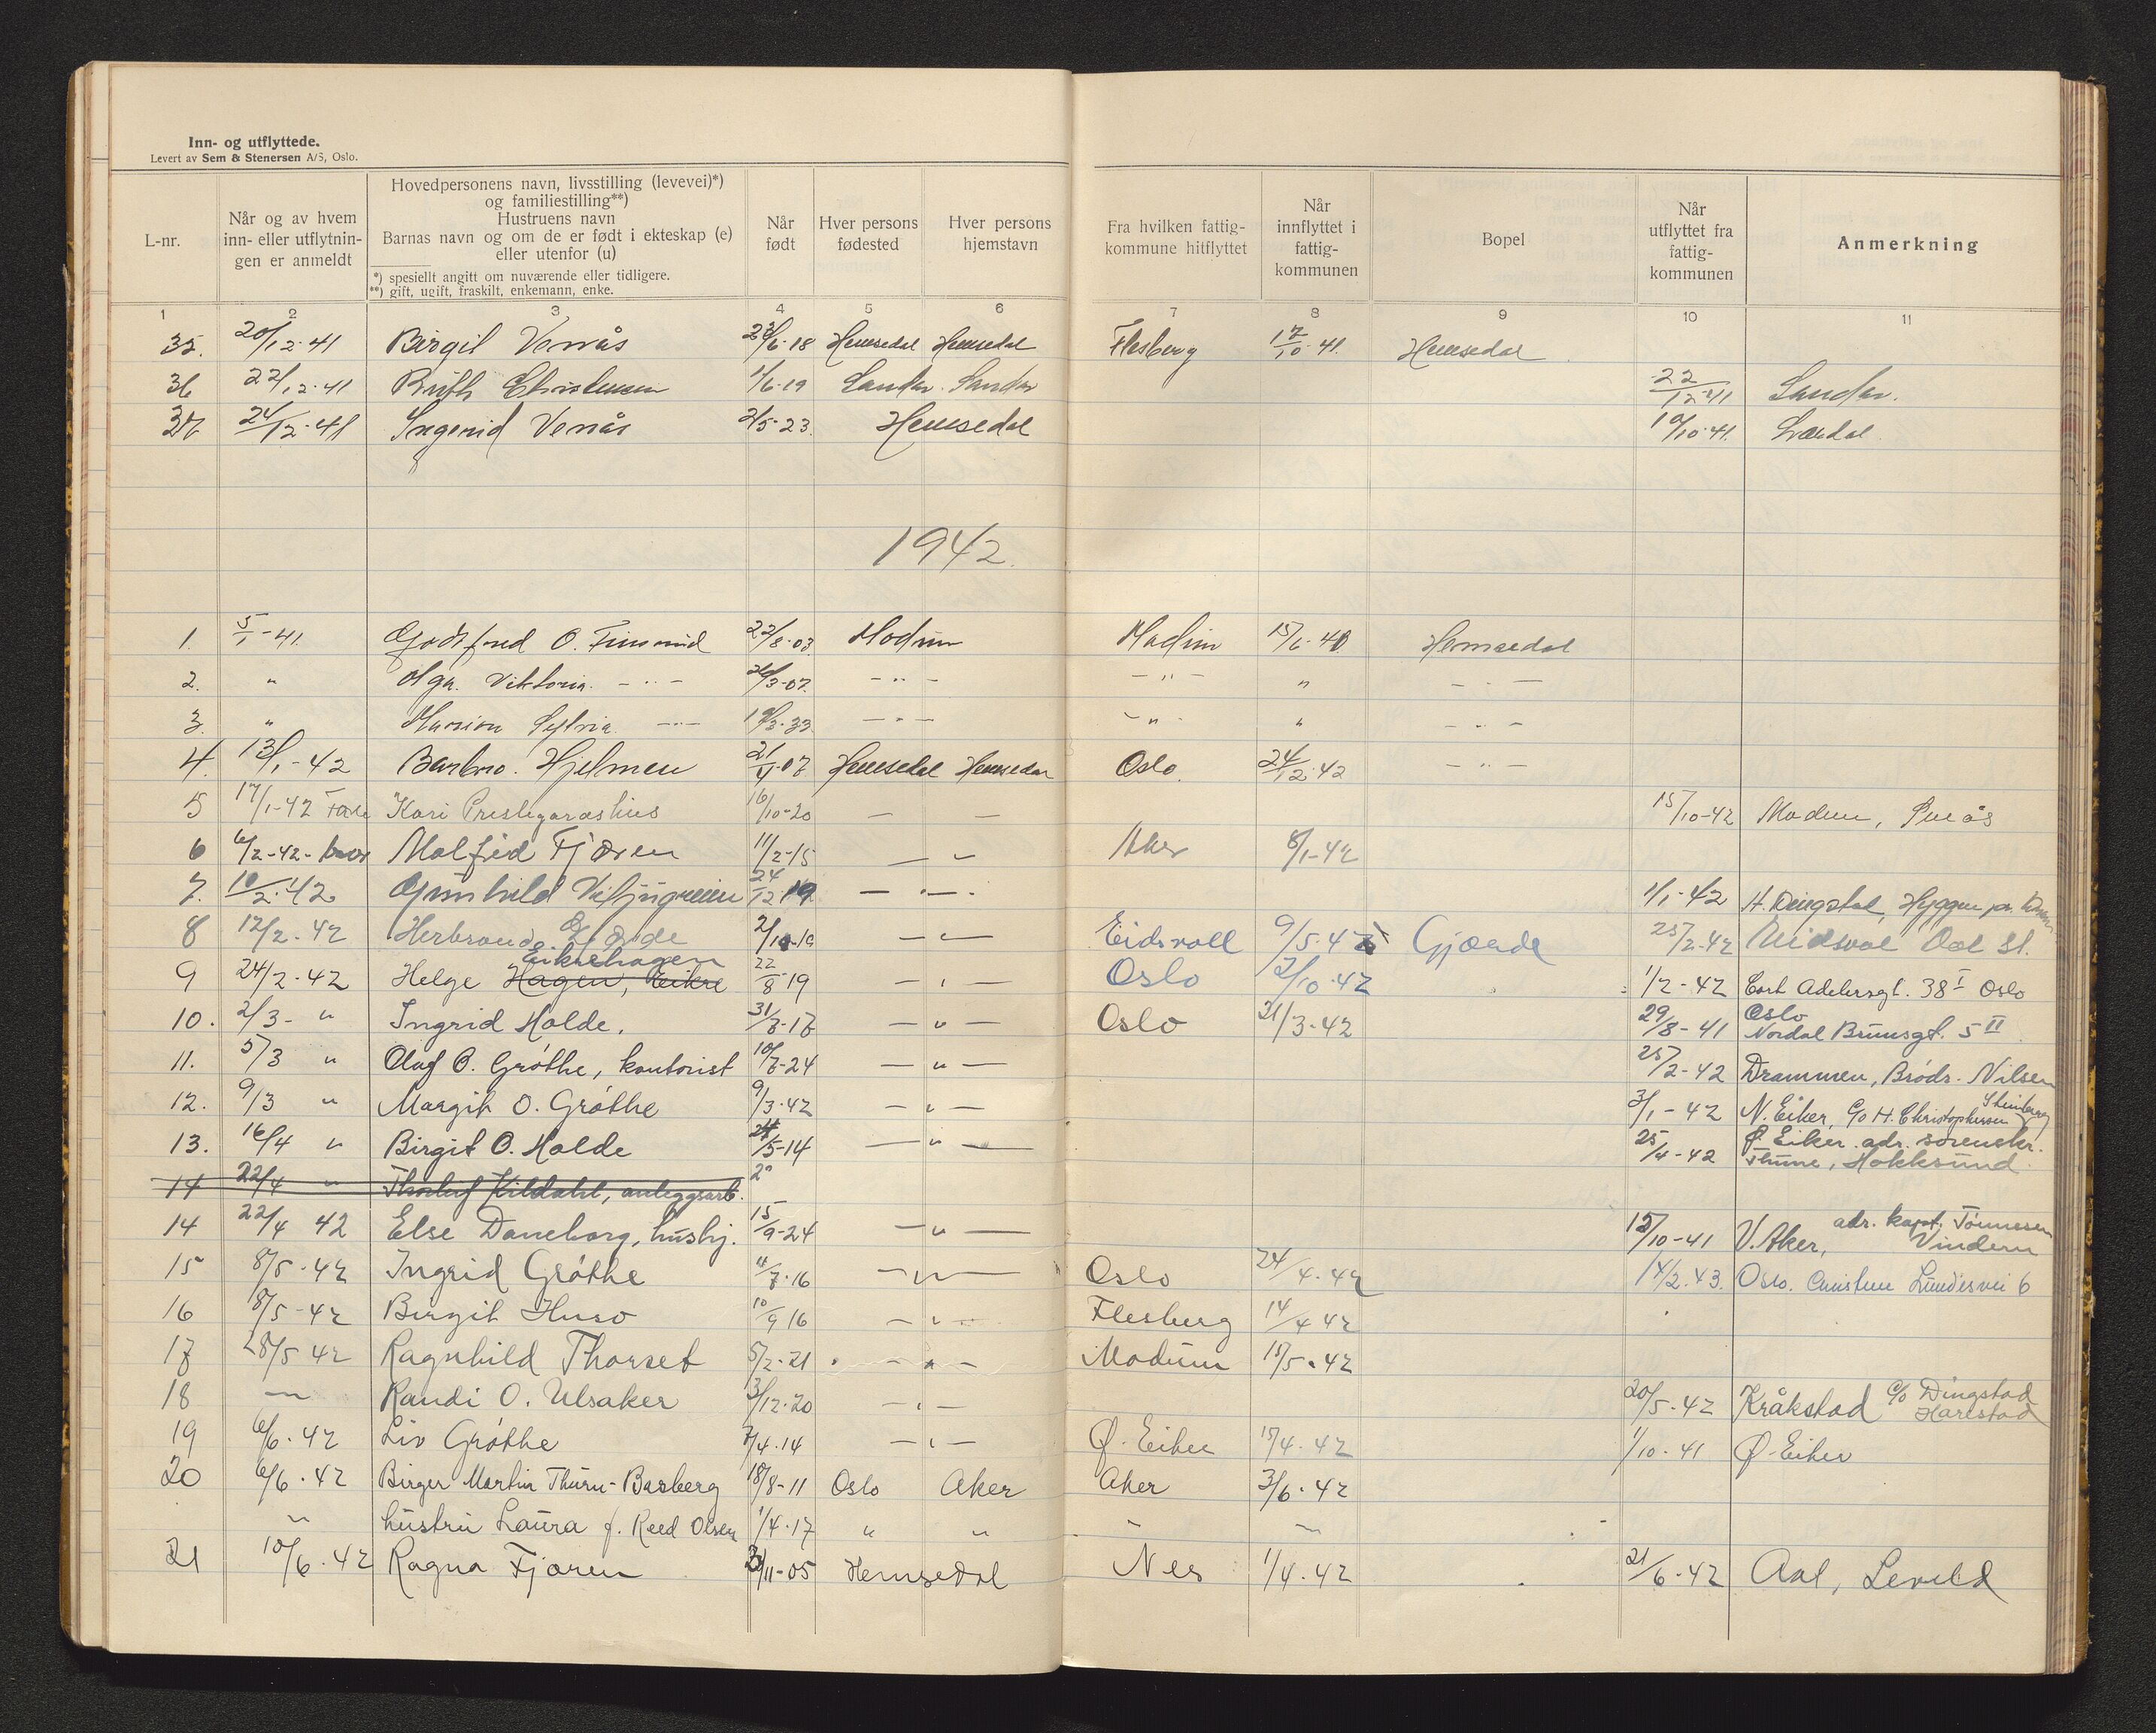 Inn- og utflyttede.
Levert av Sem & Stenersen A/S, Oslo.
L-nr.
Når og av hvem inn- eller utflytnin-gen er anmeldt
Hovedpersonens navn, livsstilling (levevei)*)
og familiestilling**)
Hustruens navn
Barnas navn og om de er født i ekteskap (e)
eller utenfor (u)
*) spesiellt angitt om nuværende eller tidligere.
**) gift, ugift, fraskilt, enkemann, enke.
Når født
Hver persons fødested
Hver persons hjemstavn
Fra hvilken fattig-kommune hitflyttet
Når innflyttet i fattig-kommunen
Bopel
Når utflyttet fra fattig-kommunen
Anmerkning
1 2 3 4 5 6 7 8 9 10 11
35. 20/12-41 Birgit Venås 6-18 Hemsedal Hemsedal Flesberg 17/10-41. Hemsedal
36 22/12-41 Ruth Christensen 1/6-19 Sandar Sandar 22/12-41 Sandar.
37 24/12-41 Ingerid Venås 2/5-23. Hemsedal 10/10-41.
1942.
1. 5/1-41. Godtfred O. 22/8-03 Modum Modum 15/6-40. Hemsedal
2. " Olga Viktoria - " - 3-07. - " - - " - " - " -
3. " Marion Sylvia - " - 3-33 - " - - " - " - " -
4. 13/1-42 Barbro Hjelmen 07 Hemsedal Hemsedal Oslo. 24/12-42 - " -
5 17/1-42 Kari Prestegardshus 16/10-20 — — 15/10-42 Modum,
6 6/2-42- Molfrid Fjøren 11/2-15 — " Aker 8/1-42
7. 10/2-42 Gunhild 24/12-19 — " — 1/1-42 H. Dingstad, Hyggen
8 12/2-42 Herbrand — " — Eidsvoll 9/5-4 Gjøende 25/2-42 St.
9 24/2-42 Helge Hagen, Eikre Eikrehagen 22/8 19 — " — Oslo 2/10-42 1/2-42 Cort Adelersgt. 38 I Oslo
10. 2/3- " Ingrid Holde. 31/ — " — Oslo 31/3-42 29/8-41 Oslo Nordal Brunsgt. 5 II
11. 5/3 " Olaf O. Grøthe, kontorist 24 — " — 25/2-42 Drammen, Brødr. Nilsen
12. 9/3 " Margit O. Grøthe 9/3-42 — " — 3/1-42 N. Eiker, c/o H. Christophersen Steinberg
13. 16/4 " Birgit O. Holde 5-14 — " — 25/4-42 Ø. Eiker. adr. sorenskr. Thune, Hokksund.
14 22/4 " Kildahl, anleggsarb.
14 22/4 42 Else Daneborg, hushj. 15/9-24 — " — 15/10-41 V. Aker, adr. kapt. Tønnesen Vindern
15 8/5-42 Ingrid Grøthe 16 — " — Oslo 24/4-42 14/2-43. Oslo. 6
16 8/5-42 Birgit Huso 10/9 16 — " — Flesberg 14/4 42
17 28/5 42 Ragnhild Thorset 5/2-21 — " — Modum 15/5-42
18 — " — Randi O. Ulsaker 3/12-20 — " — 20/5-42 Kråkstad c/o Dingstad Harestad
19 6/6-42 Liv Grøthe 7/4-14 — " — Ø. Eiker 15/4-42 1/10-41 Ø. Eiker
20 6/6-42 Birger Martin Thurn-Basberg 18/8-11 Oslo Aker Aker 3/6-42
" hustru Laura f. Reed Olsen 1/4-17 " " " "
21 10/6-42 Ragna Fjøren 11-05 Hemsedal Nes 1/4-42 21/6-42 Aal, Leveld